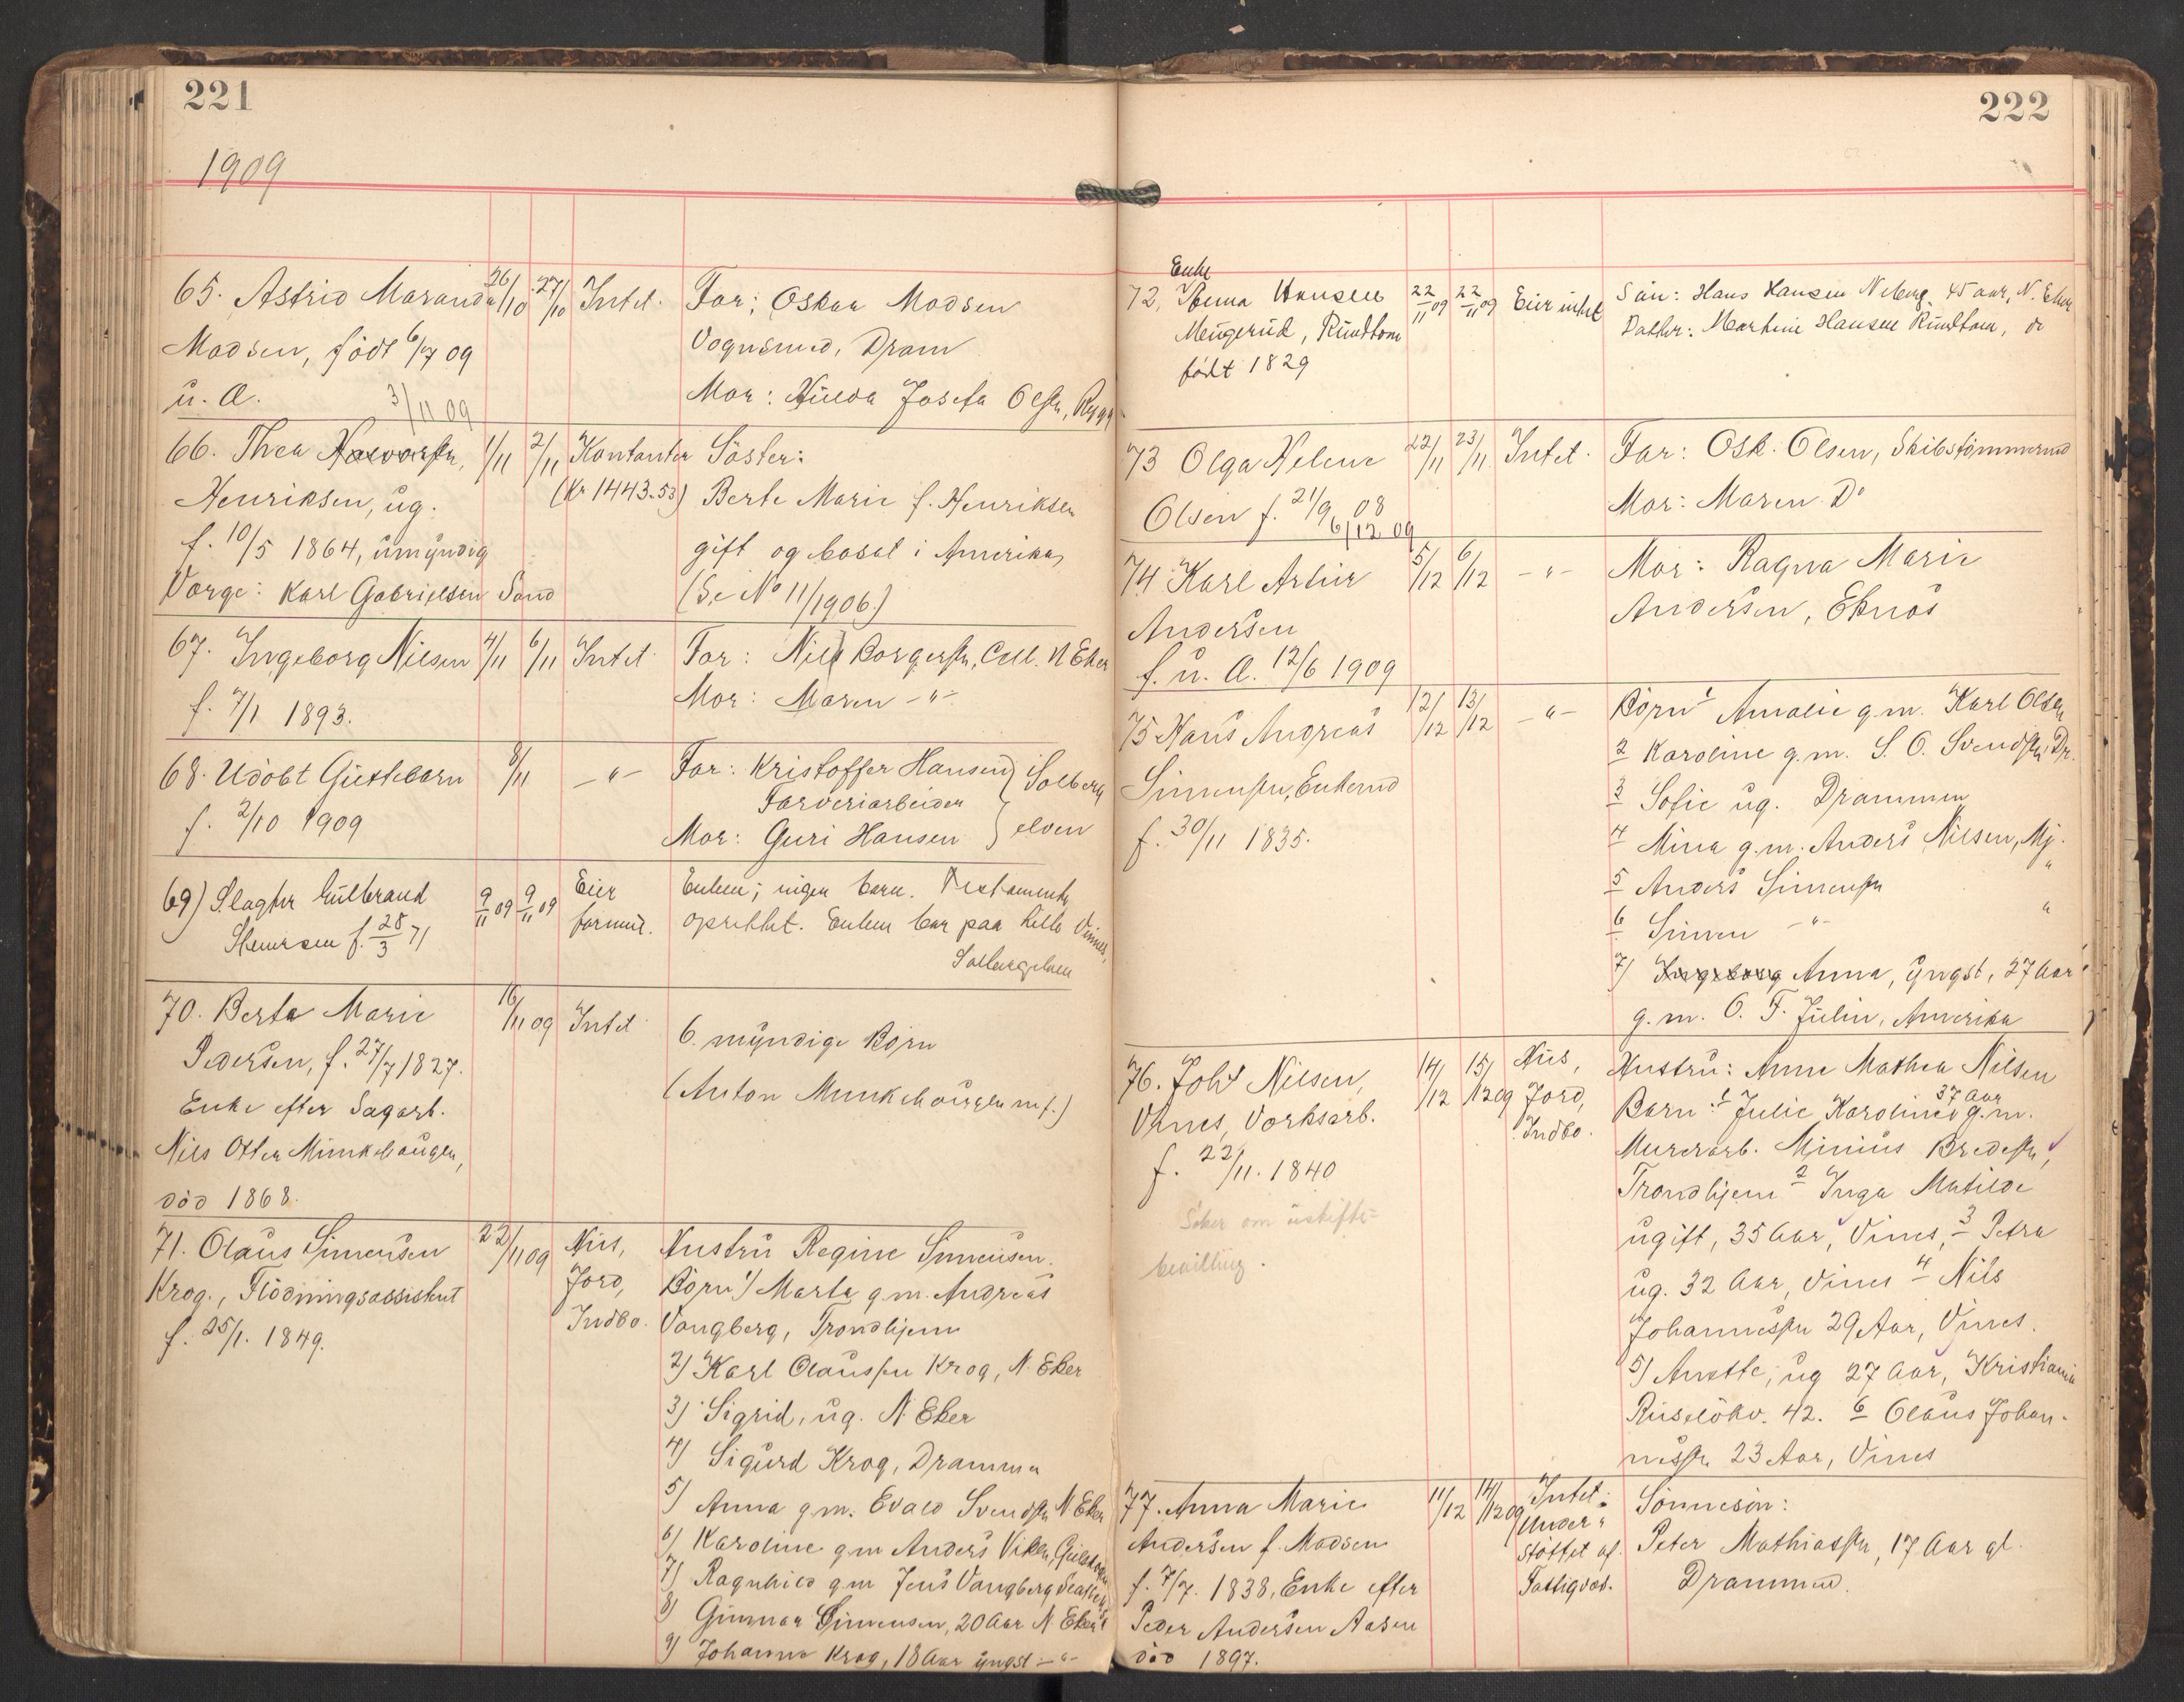 221
1909
65. Astrid Maranda 26/10 27/10 Intet. Far: Oskar Madsen
Madsen, födt 6/7 09 Vognsmed, Dram
u. Æ. 3/11 09 Mor: Hilda Josefa Olsen, Rygg
66. Thea Halvorsen, 1/11 2/11 Kontanter Söster:
Henriksen, ug. (Kr 1443.53) Berte Marie f. Henriksen
f. 10/5 1864, umyndig gift og bosat i Amerika
Værge: Karl Gabrielsen Sand (Se No 11/1906.)
67. Ingeborg Nilsen 4/11 6/11 Intet. Far: Nils Borgersen, Cell. N Eker
f. 7/1 1893. Mor: Maren -"-
68. Udöbt Guttebarn 8/11 -"- Far: Kristoffer Hansen } Solberg
Farveriarbeider
f. 2/10 1909 Mor: Guri Hansen } elven
69) Slagter Gulbrand 9/11 09 9/11 09 Eier Enken; ingen barn. Testamente
Steensen f. 28/3 71 formue. oprettet. Enken bor paa Lille Vinnes,
Solbergelven
70. Berta Marie 16/11 09 Intet 6 myndige Börn
Pedersen, f. 27/7 1827. (Anton Munkehaugen m.f.)
Enke efter Sagarb.
Nils Otter Munkehaugen,
död 1868.
71. Olaus Simensen 22/11 09 Hus, Hustru Regine Simensen.
Krog., Flödningsassistent Jord, Börn 1) Marta g.m. Andreas
f. 25/1. 1849. Indbo. Vangberg, Trondhjem
2) Karl Olaussen Krog, N. Eker
3) Sigrid, ug. N. Eker
4) Sigurd Krog, Drammen
5) Anna g.m. Evald Svendsen N Eker
6) Karoline g m Anders Viken, Gulskogen
7) Ragnhild g m Jens Vangberg Seattle
8) Gunnar Simensen, 20 Aar N. Eker
9) Johanne Krog, 18 Aar yngst -"-
222
Enke
72, Hansen 22/11 09 22/11 09 Eier intet Sön: Hans Hansen Neberg, 45 aar, N. Eker
Mengerud, Rundtom Datter: Martine Hansen Rundtom, do
födt 1829
73 Olga Helene 22/11 23/11 Intet. Far: Osk. Olsen, Skibstömmermd
Olsen f. 21/9 08 Mor: Maren Do
6/12 09
74 Karl Artur 5/12 6/12 -"- Mor: Ragna Marie
Andersen Andersen, Eknäs
f. u. Æ. 12/6 1909
75 Hans Andreas 12/12 13/12 -"- Börn 1 Amalie g.m. Karl Olsen
Simensen, Enkemd 2 Karoline g.m. S. O. Svendsen, Dr.
f. 30/11 1835. 3 Sofie ug. Drammen
4 Mina g.m. Anders Nilsen, Mj.
5 Anders Simensen "
6 Simen -"- "
7) Ingeborg Anna, yngst, 27 Aar
g.m. O. F. Julin, Amerika
76. Johs Nilsen, 14/12 15/12 09 Hus, Hustru: Anne Mathea Nilsen
Vines, Værksarb. Jord, Barn: 1 Julie Karoline 37 Aar g.m.
f. 22/11. 1840 Indbo. Murerarb. Minius Bredesen,
Söker om uskifte- Trondhjem 2 Inga Matilde
bevilling. ugift, 35 Aar, Vines, 3 Petra
ug. 32 Aar, Vines 4 Nils
Johannessen 29 Aar, Vines.
5) Anette, ug 27 Aar, Kristiania
Ruselökv. 42. 6 Olaus Johan-
nessen 23 Aar, Vines
77. Anna Marie 11/12 14/12 09 Intet. Sönnesön:
Andersen f. Madsen Under- Peter Mathiassen, 17 Aar gl.
f. 7/7. 1838, Enke efter stöttet af Drammen.
Peder Andersen Aasen Fattigvæs.
död 1897.